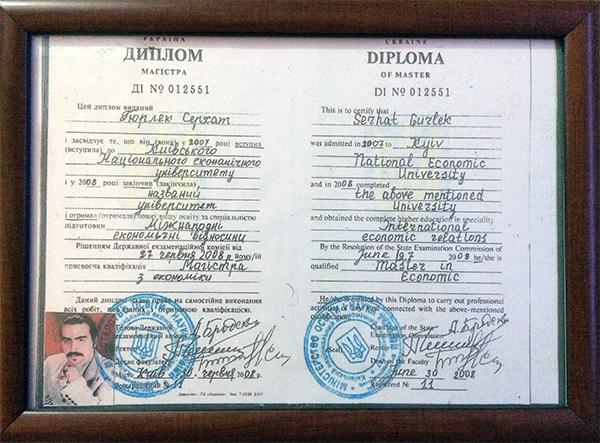 УКРАЇНА
ДИПЛОМ
МАГІСТРА
ДІ № 012551
Цей диплом виданий
Гюрлек Серхат
і засвідчує те, що він (вона) у 2007 році вступив
(вступила) до Київського
Національного економічного
університету
і у 2008 закінчив (закінчила)
названий
університет
і отримав (отримала) повну вищу освіту за спеціальністю
підготовки Міжнародні
економічні відносини
Рішенням Державної екзаменаційної комісії від
27 червня 2008 р. йому/їй
присвоєна кваліфікація Магістра
з економіки
Даний диплом дає право на самостійне виконання
всіх робіт, пов'язаних з отриманою кваліфікацією.
Голова Державної
екзаменаційної комісії
Ректор
Декан факультету
Місто Київ 30 червня 2008 р.
Реєстраційний № 11
UKRAINE
DIPLOMA
OF MASTER
DI № 012551
This is to certify that
Serhat Gurlek
was admitted in 2007 to Kyiv
National Economic
University
and in 2008 completed
the above mentioned
University
and obtained the complete higher education in speciality
International
economic relations
By the Resolution of the State Examination Commission of
June 27 2008 he/she is
qualified Master in
Economic
He/she is entitled by this Diploma to carry out professional
activities connected with the above-mentioned
qualification.
Chairman of the State
Examination Commission
(Seal)
Dean of the Faculty
June 30 2008
Registered № 11